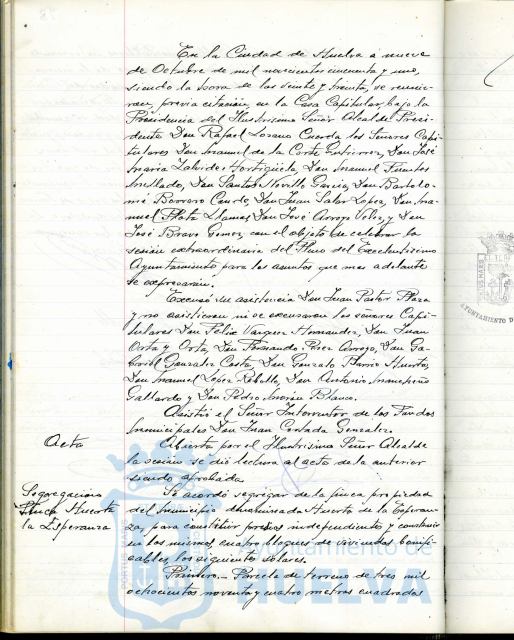 En la Ciudad de Huelva a nueve
de Octubre de mil novecientos cincuenta y uno,
siendo la hora de las veinte y treinta, se reunie-
ron, previa citación, en la Casa Capitular, bajo la
Presidencia del Ilustrísimo Señor Alcalde Presi-
dente Don Rafael Lozano Cuerda los Señores Capi-
tulares Don Manuel de la Corte Gutiérrez, Don José
María Hortigüela, Don Manuel Fuentes
Don Santos Novillo García, Don Bartolo-
mé Borrero Conde, Don Juan Salor López, Don Ma-
nuel Plata Llamas, Don José Arroyo Velez y Don
José Bravo Gómez, con el objeto de celebrar la
sesión extraordinaria del Pleno del Excelentísimo
Ayuntamiento para los asuntos que más adelante
se expresarán.
Excusó su asistencia Don Juan Pastor Plaza
y no asistieron ni se excusaron los señores Capi-
tulares Don Felix Vázquez Hernández, Don Juan
Orta y Orta, Don Fernando Pérez Arroyo, Don Ga-
briel González Costa, Don Gonzalo Huertos,
Don Manuel López Rebollo, Don Antonio
Gallardo y Don Pedro Morón Blanco.
Asistió el Señor Interventor de los Fondos
Municipales Don Juan González.
Acta
Abierta por el Ilustrísimo Señor Alcalde
la sesión se dió lectura al acta de la anterior
siendo aprobada.
Segregaciones
Finca Huerto
la Esperanza
Se acordó segregar de la finca propiedad
del Municipio denominada Huerto de la Esperan-
za, para constituir predios independientes y construir
en los mismos cuatro bloques de viviendas bonifi-
cables, los siguientes solares.
Primero.- Parcela de terreno de tres mil
ochocientos noventa y cuatro metros cuadrados
Ayuntamiento de
HUELVA
PORTUS MARIS
AYUNTAMIENTO D